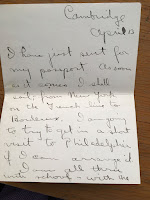 Cambridge
April 13
I have just sent for
my passport. As soon
as it comes I shall
sail, from New York
on the French line to
Bordeaux. I am going
to try to get in a short
visit to Philadelphia
if I can arrange it
I am all three
with the